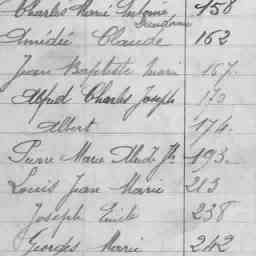 Charles Marie Antoine 158
Amédée Claude 162
Jean Baptiste Marie 167.
Alfred Charles Joseph 170
Albert 174.
Pierre Marie 193.
Louis Jean Marie 213
Joseph Emile 238
Georges Marie 242